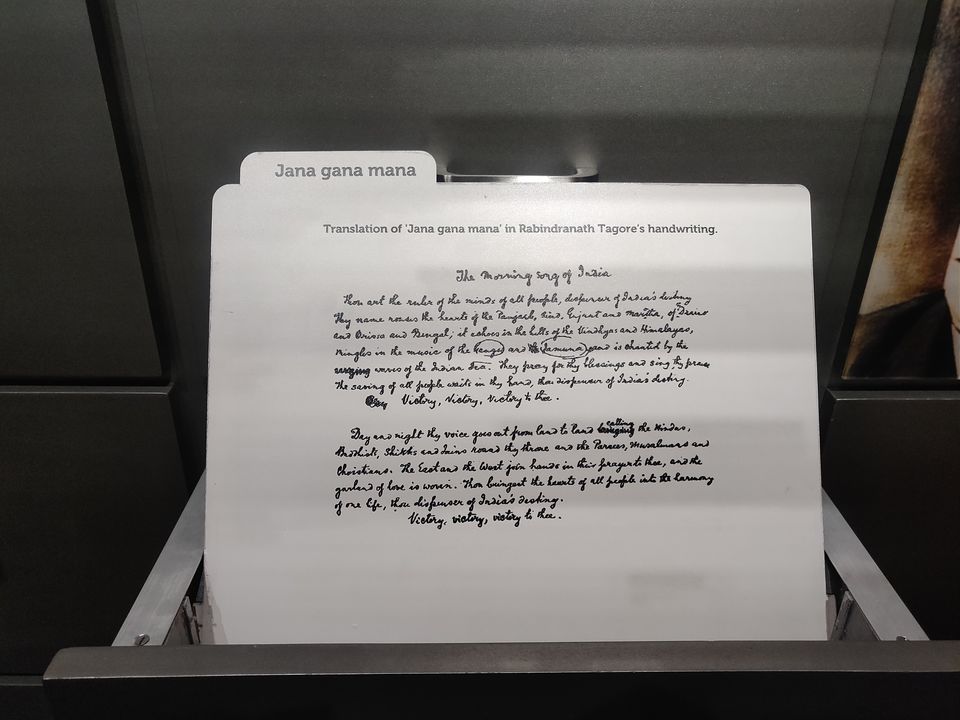 Jana gana mana
Translation of 'Jana gana mana' in Rabindranath Tagore's handwriting.
The morning song of India
Thou art the ruler of the minds of all people, dispenser of India's destiny
Thy name rouses the hearts of the Punjaub, Sind, Gujrat and Maratha, of Dravid
and Orissa and Bengal; it echoes in the hills of the Vindhyas and Himalayas,
mingles in the music of the Ganges and Jamuna and is chanted by the
waves of the Indian Sea. They pray for thy blessings and sing thy praise
The saving of all people waits in thy hand, thou dispenser of India's destiny.
Victory, Victory, Victory to thee.
Day and night thy voice goes out from land to land calling the Hindus,
Buddhists, Shikhs and Jains round thy throne and the Parsees, Musalmans and
Christians. The East and the West join hands in their prayer to thee, and the
garland of love is woven. Thou bringest the hearts of all people into the harmony
of one life, thou dispenser of India's destiny.
Victory, victory, victory to thee.